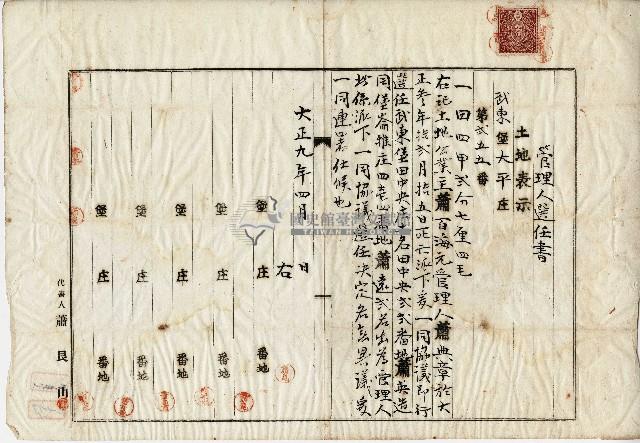 管理人選任書
土地表示
武東堡大平庄
第弍五五番
一田四甲弍分七厘四毛
右記土地公業主蕭百海元管理人蕭典章於大
正參年拾弍月拾五日死亡派下爰一同協議即行
選任武東堡田中央庄土名田中央弍弍番地蕭英造
同堡崙雅庄四壱番地蕭遠弍名出為管理人
均係派下一同協議選任決定各無異議爰
一同連署仕候也
大正九年四月 日
右
堡 庄 番地
堡 庄 番地
堡 庄 番地
堡 庄 番地
堡 庄 番地
代書人 蕭良
國史館臺灣文獻館
TAIWAN HISTORICA